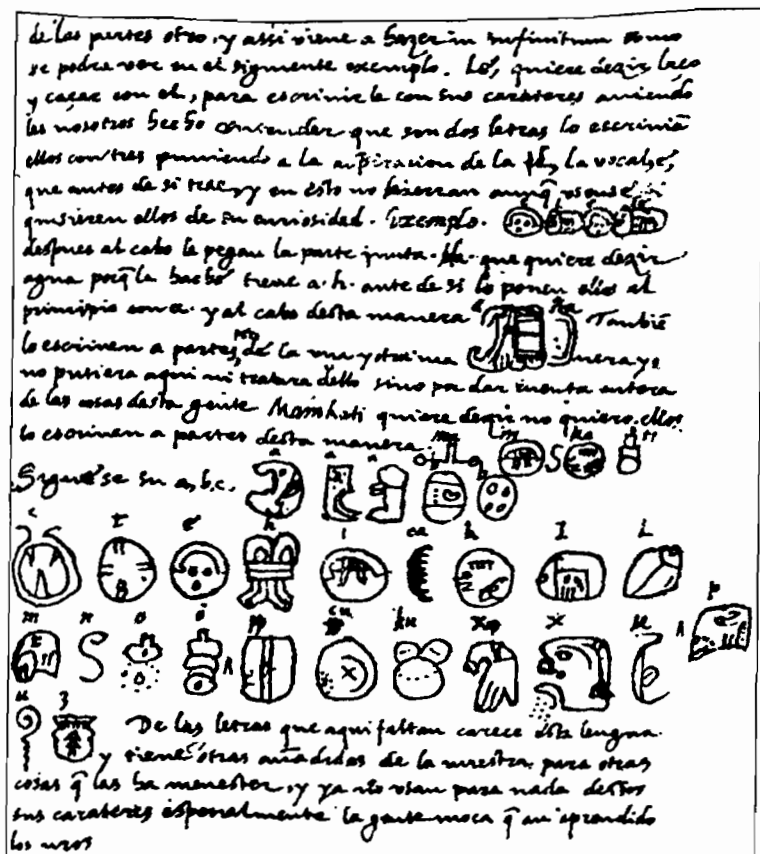 de las partes otro, y assi viene a hazer in infinitum como
se podra ver en el siguiente exemplo. Lé, quiere dezir laço
y caçar con el, para escriuirle con sus carateres auiendo
les nosotros hecho entender que son dos letras lo escriuiã
ellos con tres puniendo a la aspiracion de la l, la vocal é,
que antes de si trae, y en esto no hierran aunq̃ usense si
quisieren ellos de su curiosidad. Exemplo. e l e lé
despues al cabo le pegan la parte junta. Ha. que quiere dezir
agua porq̃ la haché tiene a. h. ante de si lo ponen ellos al
principio con a. y al cabo desta manera a ha Tambiẽ
lo escriuen a partes, de la una y otra ma nera yo
no pusiera aqui ni tratara dello sino por dar cuenta entera
de las cosas desta gente Mainkati quiere dezir no quiero, ellos
lo escriuen a partes desta manera. ma i n ka ti
Siguese su a, b, c. a a a b b
c t é h i ca k l l
m n o o pp cu ku x x u p
u z De las letras que aqui faltan carece esta lengua
y tiene otras añadidas de la nuestra para otras
cosas q̃ las ha menester, y ya no usan para nada destos
sus carateres especialmente la gente moça q̃ an aprendido
los nros